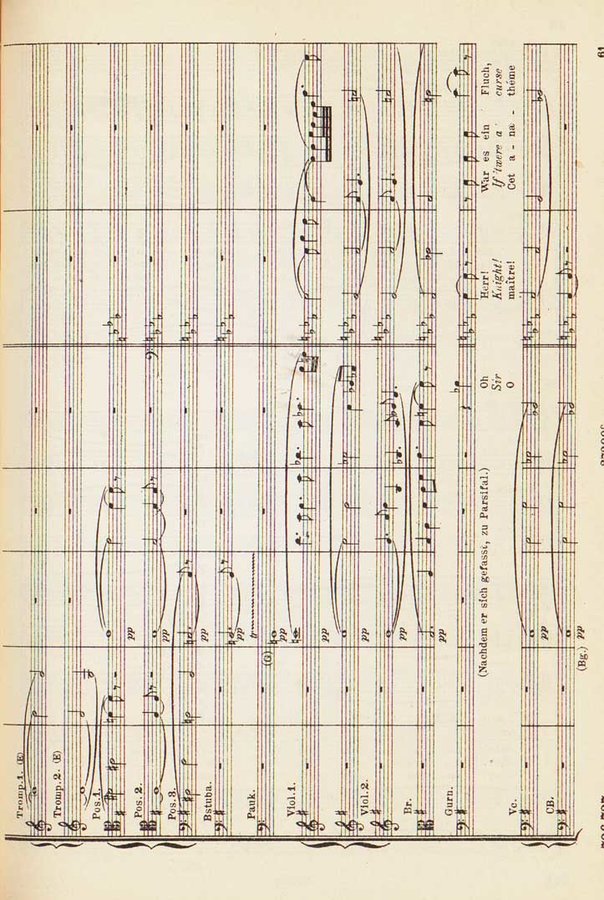 61
Tromp.1. (E)
Tromp.2. (E)
Pos.1.
Pos. 2.
Pos.3.
Bstuba.
Pauk.
Viol.1.
Viol.2.
Br.
Gurn.
Vc.
CB.
pp
pp
pp
pp
tr
pp
(G)
pp
pp
pp
pp
(Nachdem er sich gefasst, zu Parsifal.)
Oh Herr! War es ein Fluch,
Sir Knight! If 'twere a curse
O maître! Cet a - na - thème
pp
pp
(Bg.)